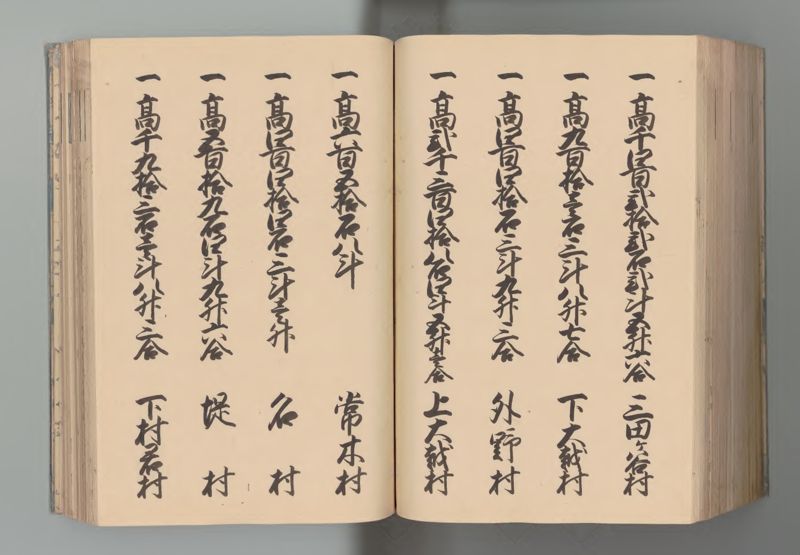 一高千四百弐拾弐石弐斗五升六合 三田ヶ谷村
一高九百拾壱石三斗八升七合 下大越村
一高四百四拾石三斗九升三合 外野村
一高弐千三百四拾八石四斗五升壱合 上大越村
一高六百五拾石八斗 常木村
一高四百四拾四石三斗壱升 名村
一高五百拾九石四斗九升六合 堤村
一高千九拾三石壱斗八升三合 下村君村